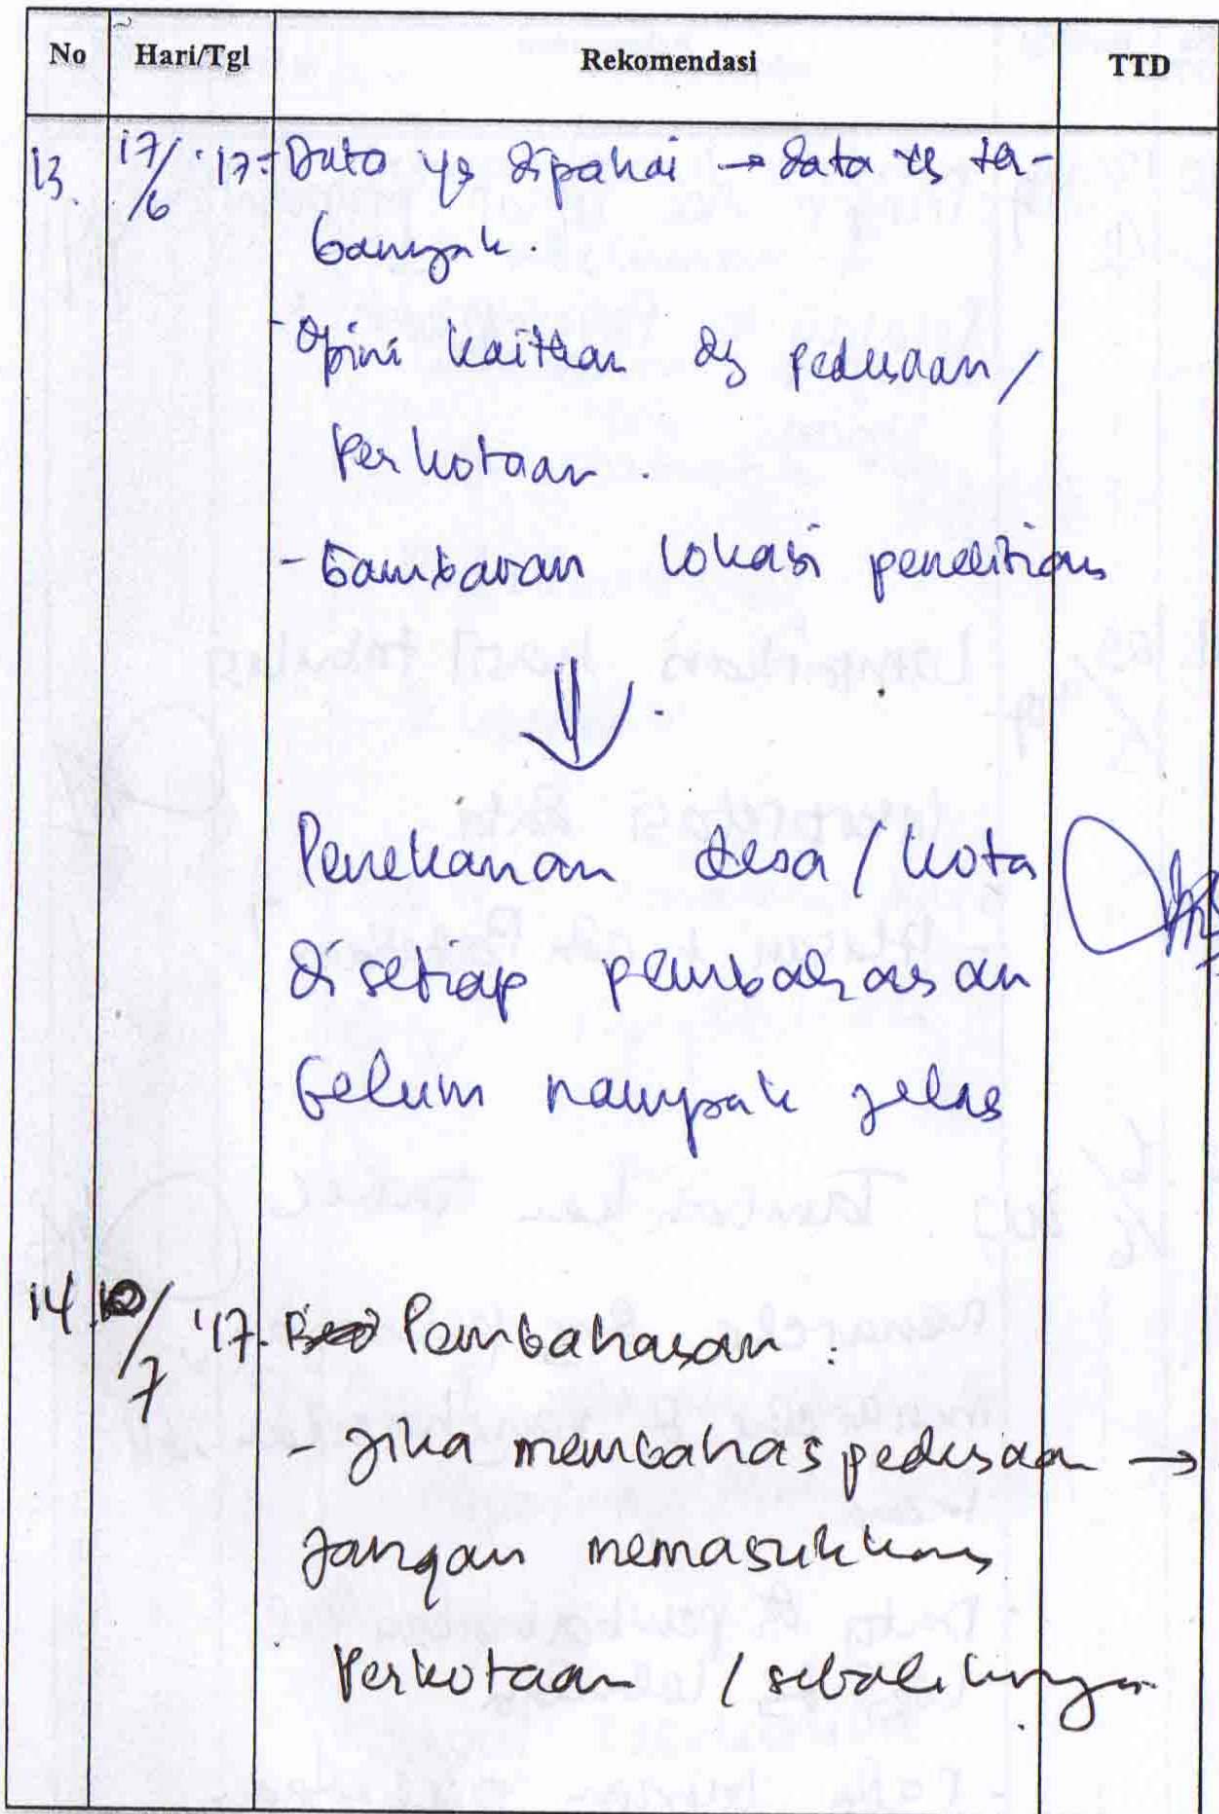 No Hari/Tgl Rekomendasi TTD
13. 17/6 '17 - Data yg dipakai → data yg ter-
banyak.
- Opini kaitkan dg pedesaan/
Perkotaan.
- Gambaran lokasi penelitian
↓
Penekanan desa / kota
disetiap pembahasan
belum nampak jelas
14. /7 '17. Pembahasan :
- Jika membahas pedesaan →
Jangan memasukkan
Perkotaan / sebaliknya.